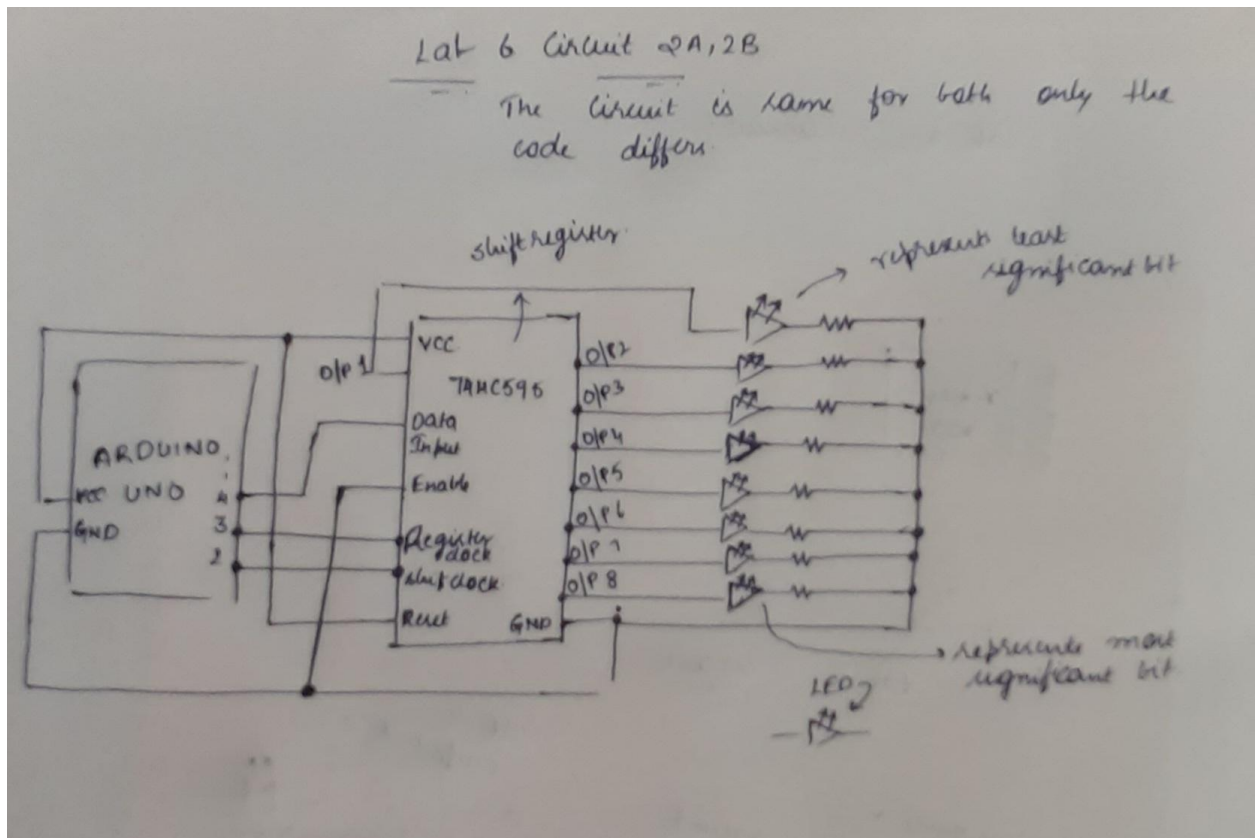 Lab 6 Circuit 2A, 2B
The Circuit is same for both only the
code differs.
shift register
represents least
significant bit
VCC
O/P 1
74HC595
Data
Input
Enable
Register
clock
shift clock
Reset
GND
O/P2
O/P3
O/P4
O/P5
O/P6
O/P 7
O/P 8
ARDUINO
UNO
VCC
GND
4
3
2
represents most
significant bit
LED